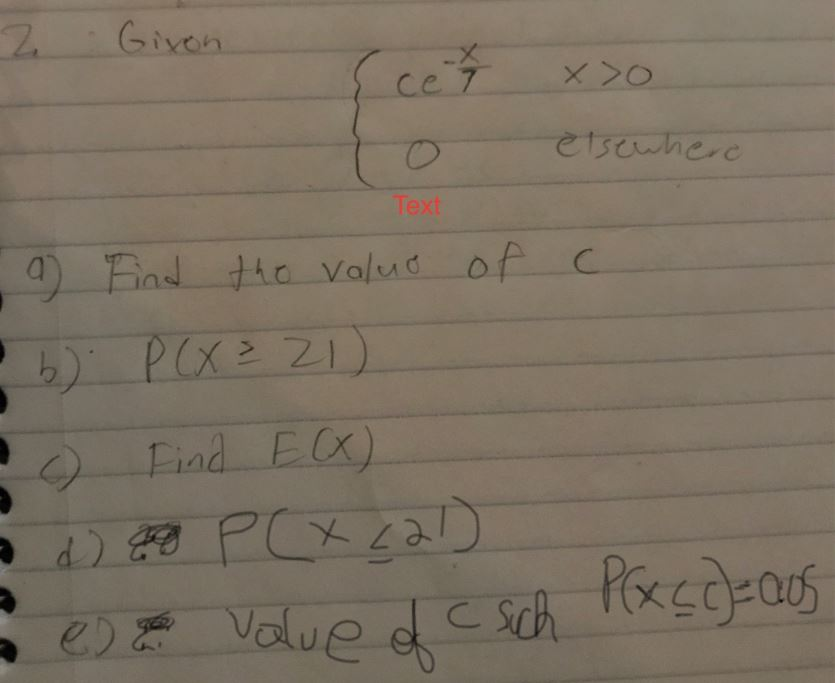 2. Given
ce^{-x/7} x > 0
0 elsewhere
Text
a) Find the value of c
b) P(X ≥ 21)
c) Find E(X)
d) P(X ≤ 21)
e) Value of c such P(X ≤ c) = 0.05